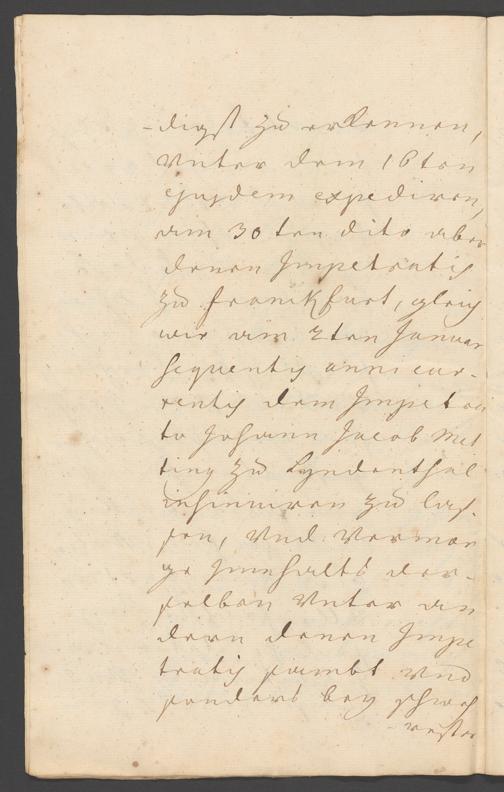 -digst zu erkennen,
Vnter dem 16ten
ejusdem expediren,
am 30ten dito aber
denen Impetratis
zu Franckfurt, gleich
wie am 2ten Januar
sequentis anni cur-
rentis dem Impetra
to Johann Jacob Met
ting zu Lyndenthal
insinuiren zu las-
sen, Vnd Vermö
ge Innhalts der-
selben Vnter an
dern denen Impe
tratis sambt Vnd
sonders bey schwe
rester